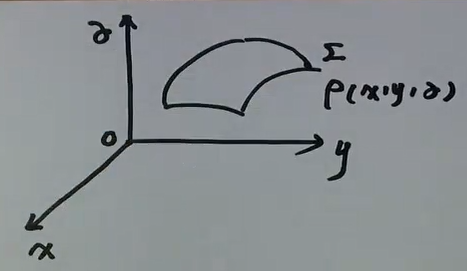 z
Σ
ρ(x,y,z)
0
y
x